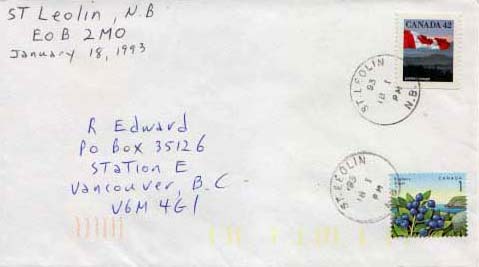 ST Leolin, N.B
EOB 2MO
January 18, 1993
CANADA 42
ST. LEOLIN
93
18 I
PM
N.B.
R Edward
PO Box 35126
STATION E
Vancouver, B.C
V6M 4G1
ST. LEOLIN
93
18 I
PM
CANADA
1